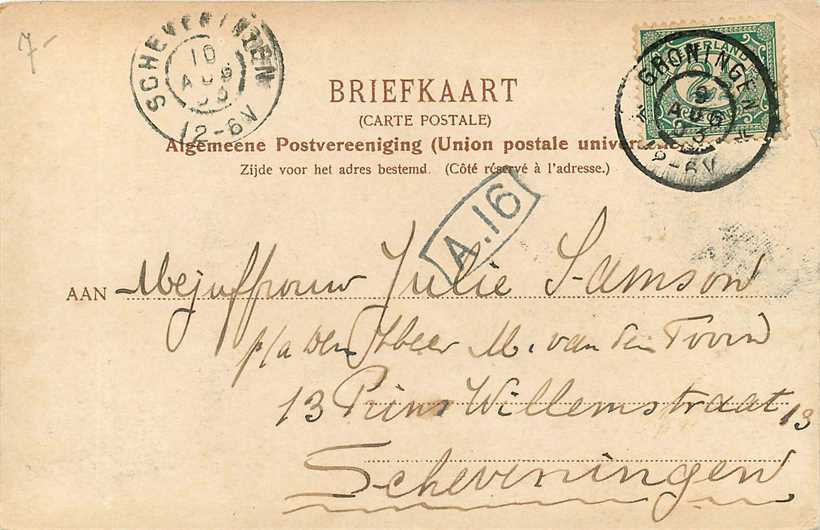 7-
SCHEVENINGEN
10
AUG
03
12-6V
GRONINGEN
9
AUG
03
2-6V
NEDERLAND
2½
BRIEFKAART
(CARTE POSTALE)
Algemeene Postvereeniging (Union postale universelle)
Zijde voor het adres bestemd. (Côté réservé à l'adresse.)
A.16
AAN Mejuffrouw Julie Samson
p/a Den Heer M. van den Toorn
13 Prins Willemstraat 13
Scheveningen